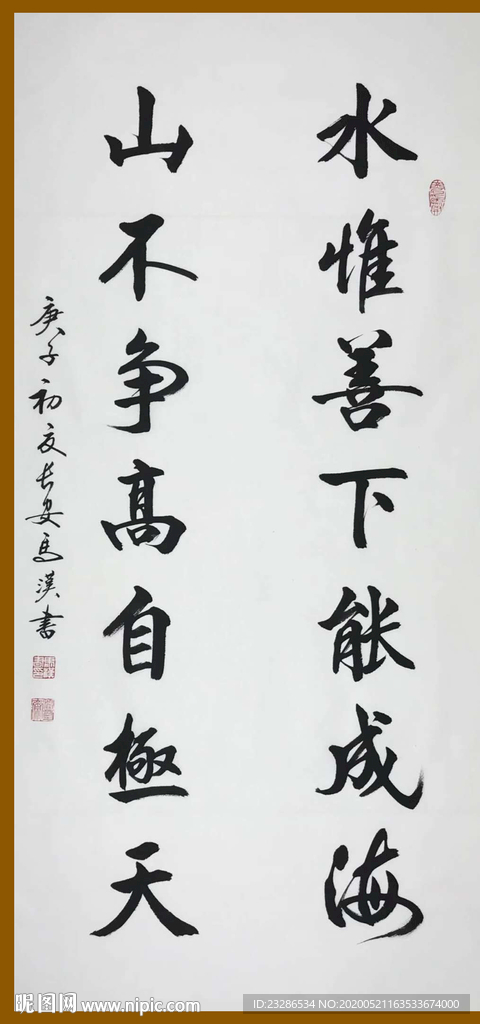 水惟善下能成海
山不争高自極天
庚子初夏長安馬漢書
昵图网 www.nipic.com
ID:23286534 NO:20200521163533674000